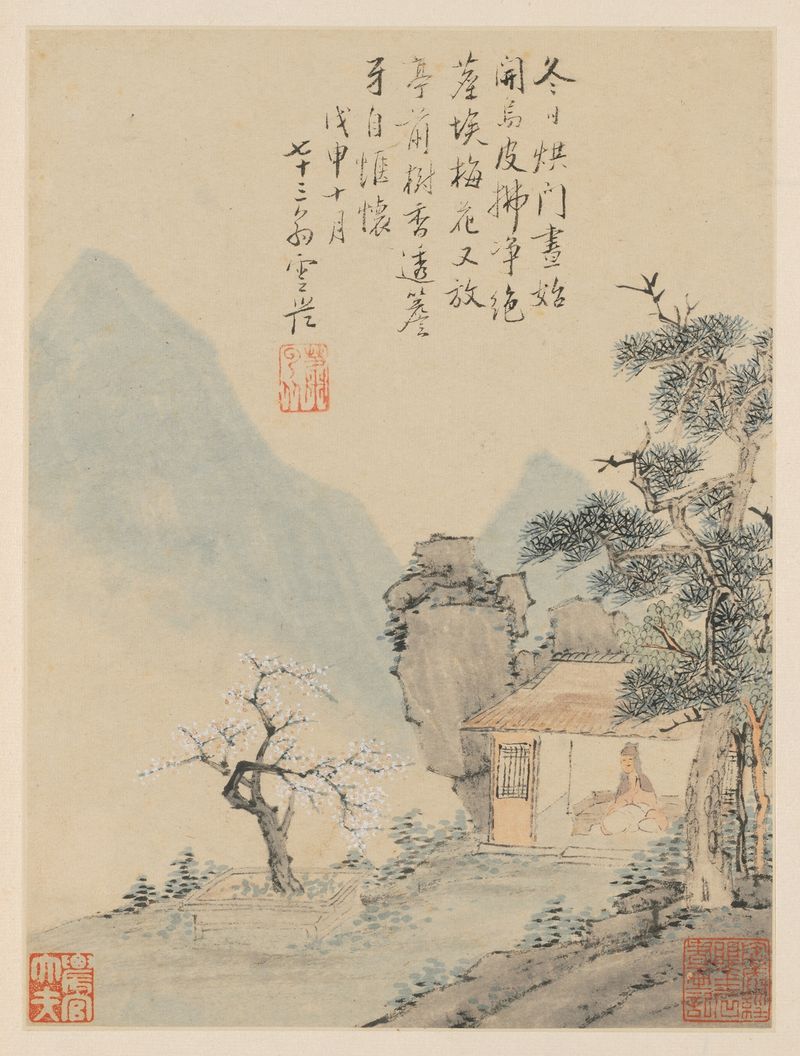 冬日烘門晝始
開烏皮拂淨絕
塵埃梅花又放
亭前樹香透簷
牙自愜懷
戊申十月
七十三翁雲從
農官
大夫